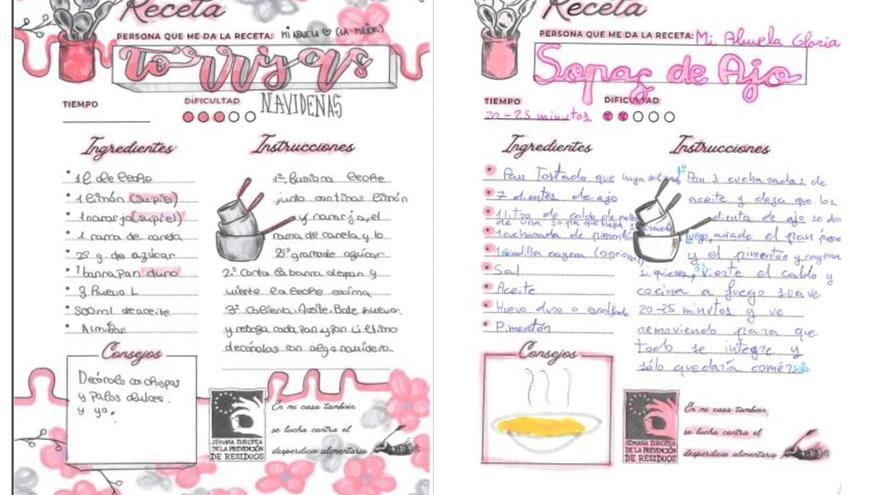 Receta
PERSONA QUE ME DA LA RECETA: Mi ABUELA (LA MEJOR)
TORRIJAS
NAVIDEÑAS
TIEMPO
DIFICULTAD
Ingredientes
1l de leche
1 limón (su piel)
1 naranja (su piel)
1 rama de canela
g de azúcar
1 barra pan duro
3 huevo L
300ml de aceite
Almíbar
Instrucciones
1º fusiona leche
junto con tiras limón
y naranja, el
rama de canela y lo
gramo de azúcar
2º Corta la barra de pan y
vierte la leche encima
3º Calienta Aceite. Bate huevo
y reboza cada pan y por último
decóralas con algo navideño.
Consejos
Decóralo con chispas
y palos dulces.
y ya.
SEMANA EUROPEA
DE LA PREVENCIÓN
DE RESIDUOS
En mi casa también
se lucha contra el
desperdicio alimentario
Receta
PERSONA QUE ME DA LA RECETA: Mi Abuela Gloria
Sopas de Ajo
TIEMPO
20-25 minutos
DIFICULTAD
Ingredientes
Pan Tostado que haya sobrado
7 dientes de ajo
1 litro de caldo de pollo
de una sopa que haya sobrado
1 cucharada de pimentón
1 Guindilla cayena (opcional)
Sal
Aceite
Huevo duro o escalfado
Pimentón
Instrucciones
1º Pon 3 cucharadas de
aceite y deja que los
dienta de ajo se doren
luego, añade el pan
y el pimentón y cayena
si quieres, 3º Vierte el caldo y
cocina a fuego suave
20-25 minutos y ve
removiendo para que
todo se integre y
sólo quedaría comérsela
Consejos
SEMANA EUROPEA
DE LA PREVENCIÓN
DE RESIDUOS
En mi casa también,
se lucha contra el
desperdicio alimentario